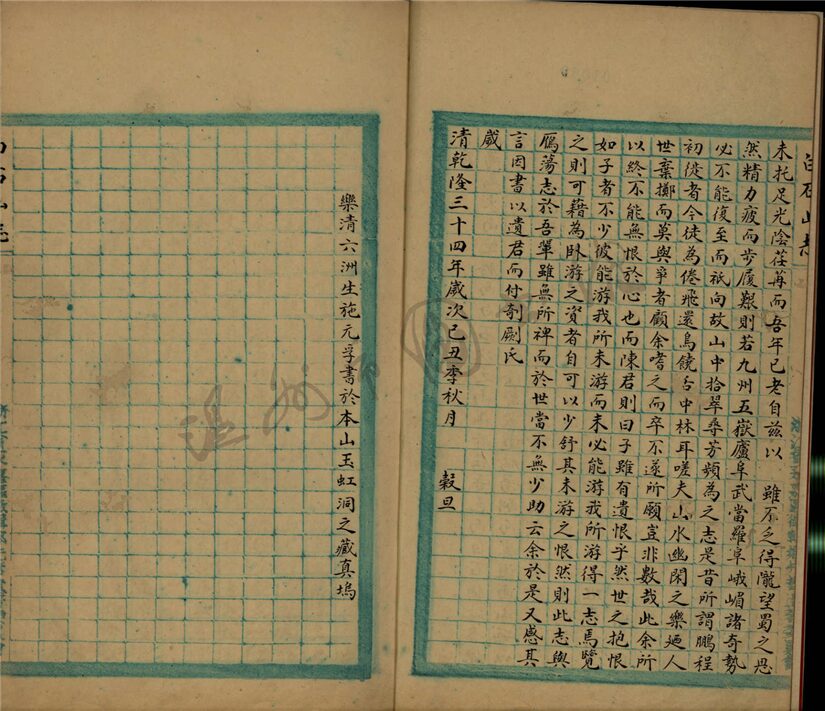 白石山志
未托足光陰荏苒而吾年已老自兹以 雖不乏得隴望蜀之思
然精力疲而步履艱則若九州五嶽廬阜武當羅阜峨嵋諸奇勢
必不能復至而祇向故山中拾翠尋芳頻為之志是昔所謂鵬程
初徙者今徒為倦飛還鳥饒舌中林耳嗟夫山水幽閑之樂廼人
世棄擲而莫與爭者顧余嗜之而卒不遂所願豈非數哉此余所
以終不能無恨於心也而陳君則曰子雖有遺恨乎然世之抱恨
如子者不少彼能游我所未游而未必能游我所游得一志焉覽
之則可藉為卧游之資者自可以少舒其未游之恨然則此志與
鴈蕩志於吾軰雖無所裨而於世當不無少助云余於是又感其
言因書以遺君而付剞劂氏
歲
清乾隆三十四年歲次己丑季秋月 穀旦
樂清六洲生施元孚書於本山玉虹洞之藏真塢
白石山志
溫州市圖